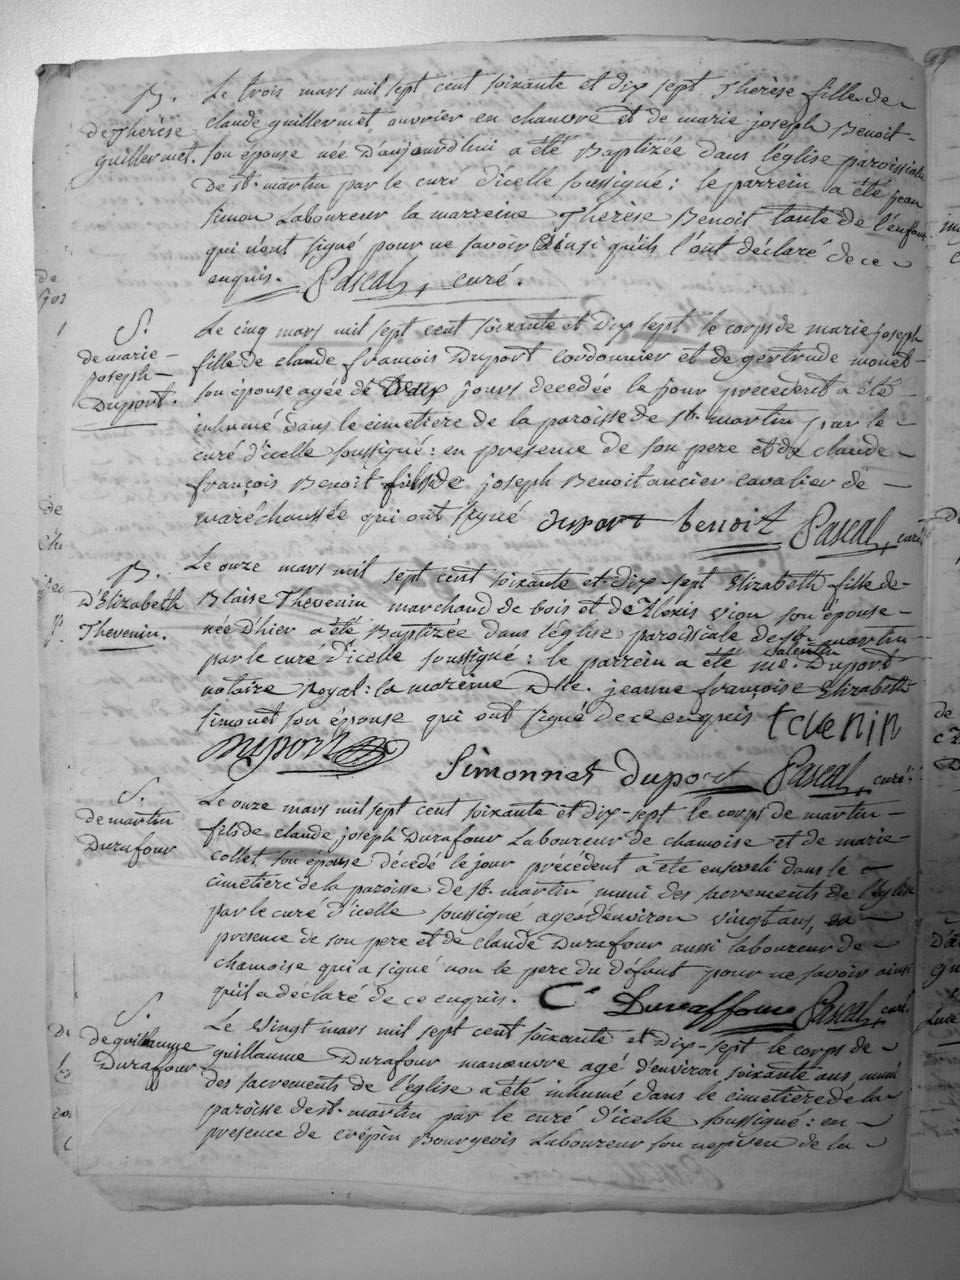 B.
de Thérèse
guillermet.
Le trois mars mil sept cent soixante et dix sept Thérèse fille de
claude guillermet ouvrier en chanvre et de marie joseph Benoit
son épouse née d'aujourdhui a été Baptizée dans l'église paroissiale
de st. martin par le curé d'icelle soussigné : le parrein a été jean
simon Laboureur la marreine Thérèse Benoit tante de l'enfant
qui n'ont signé pour ne savoir Ainsi qu'ils l'ont déclaré de ce
enquis. Pascal, curé.
S.
de marie
joseph
Duport.
Le cinq mars mil sept cent soixante et dix sept le corps de marie joseph
fille de claude françois Duport cordonnier et de gertrude monet
son épouse agée de deux jours decedée le jour précédent a été
inhumé dans le cimetiere de la paroisse de st. martin par le
curé d'icelle soussigné : en presence de son pere et de claude
françois Benoit fils de joseph Benoit ancier cavalier de
maréchaussée qui ont signé duport benoit Pascal, curé
B.
d'Elizabeth
Thevenin.
Le onze mars mil sept cent soixante et dix-sept Elizabeth fille de
Blaise Thevenin marchand de bois et de Alexis vion son épouse
née d'hier a été Baptizée dans l'église paroissiale de st. martin
par le curé d'icelle soussigné : le parrein a été me. valentin Duport
notaire Royal : la mareine Dlle. jeanne françoise Elizabeth
simonet son épouse qui ont signé de ce enquis tevenin
Duport
Simonnet duport Pascal, curé
S.
de martin
Durafour
Le onze mars mil sept cent soixante et dix-sept le corps de martin
fils de claude joseph Durafour Laboureur de chamoise et de marie
collet son épouse décédé le jour précédent a été enseveli dans le
cimetiere de la paroisse de st. martin muni des sacrements de l'Eglise
par le curé d'icelle soussigné agé d'environ vingt ans, en
presence de son pere et de claude Durafour aussi laboureur de
chamoise qui a signé non le pere du défunt pour ne savoir ainsi
qu'il a déclaré de ce enquis. Ce Duraffour Pascal, curé
S.
de guillaume
Durafour
Le vingt mars mil sept cent soixante et dix-sept le corps de
guillaume Durafour manœuvre agé d'environ soixante ans muni
des sacrements de l'église a été inhumé dans le cimetiere de la
paroisse de st. martin par le curé d'icelle soussigné : en
presence de crépin Bourgeois Laboureur son nepveu de la